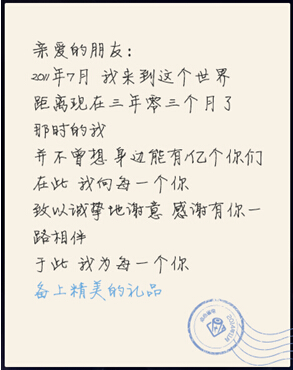 亲爱的朋友：
2011年7月 我来到这个世界
距离现在三年零三个月了
那时的我
并不曾想 身边能有亿个你们
在此 我向每一个你
致以诚挚地谢意 感谢有你一
路相伴
于此 我为每一个你
备上精美的礼品